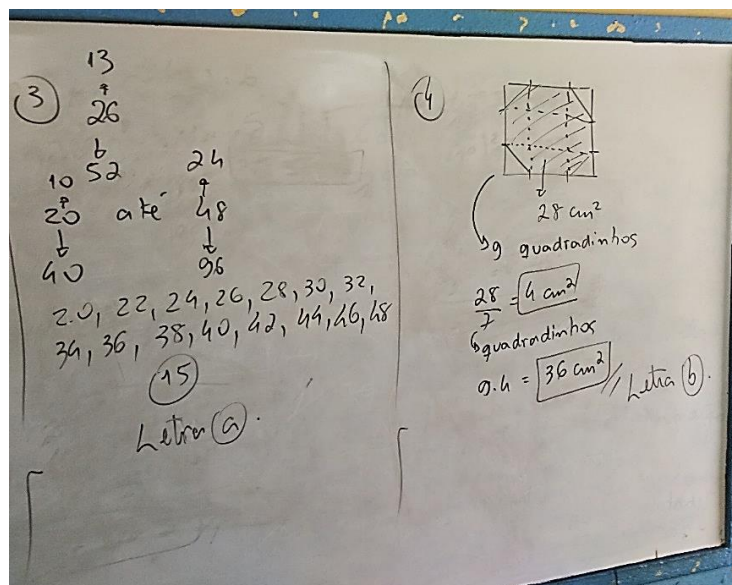 3
13
↑
26
↓
52
10
↑
20
↓
40
até
24
↑
48
↓
96
20, 22, 24, 26, 28, 30, 32,
34, 36, 38, 40, 42, 44, 46, 48
15
Letra a.
4
28 cm²
9 quadradinhos
28/7 = 4 cm²
quadradinhos
9.4 = 36 cm² // Letra b.